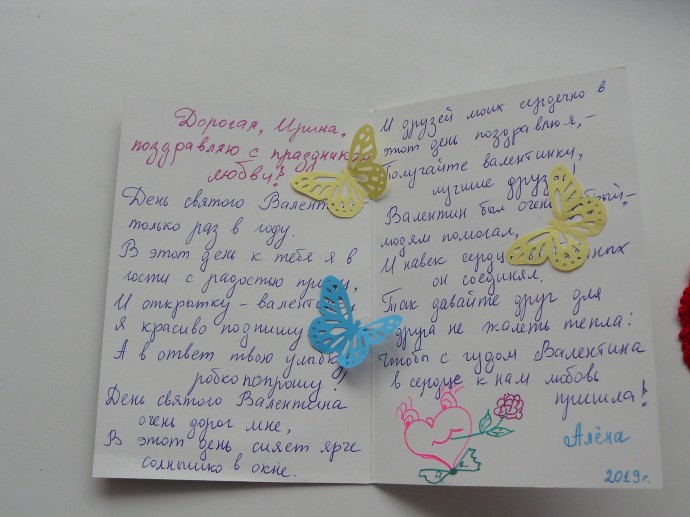 Дорогая, Ирина,
поздравляю с праздником
любви!
День святого
только раз в году.
В этот день к тебе я в
гости с радостью
И открытку -
я красиво подпишу
А в ответ твою улыбку
робко попрошу!
День святого Валентина
очень дорог мне,
В этот день сияет ярче
солнышко в окне.
И друзей моих сердечно в
этот день поздравляю, -
Получайте валентинку,
лучшие друзья!
Валентин был очень -
людям помогал,
И навек
он соединял.
Так давайте друг для
друга не жалеть тепла:
Чтобы с чудом Валентина
в сердце к нам любовь
пришла!
Алёна
2019г.